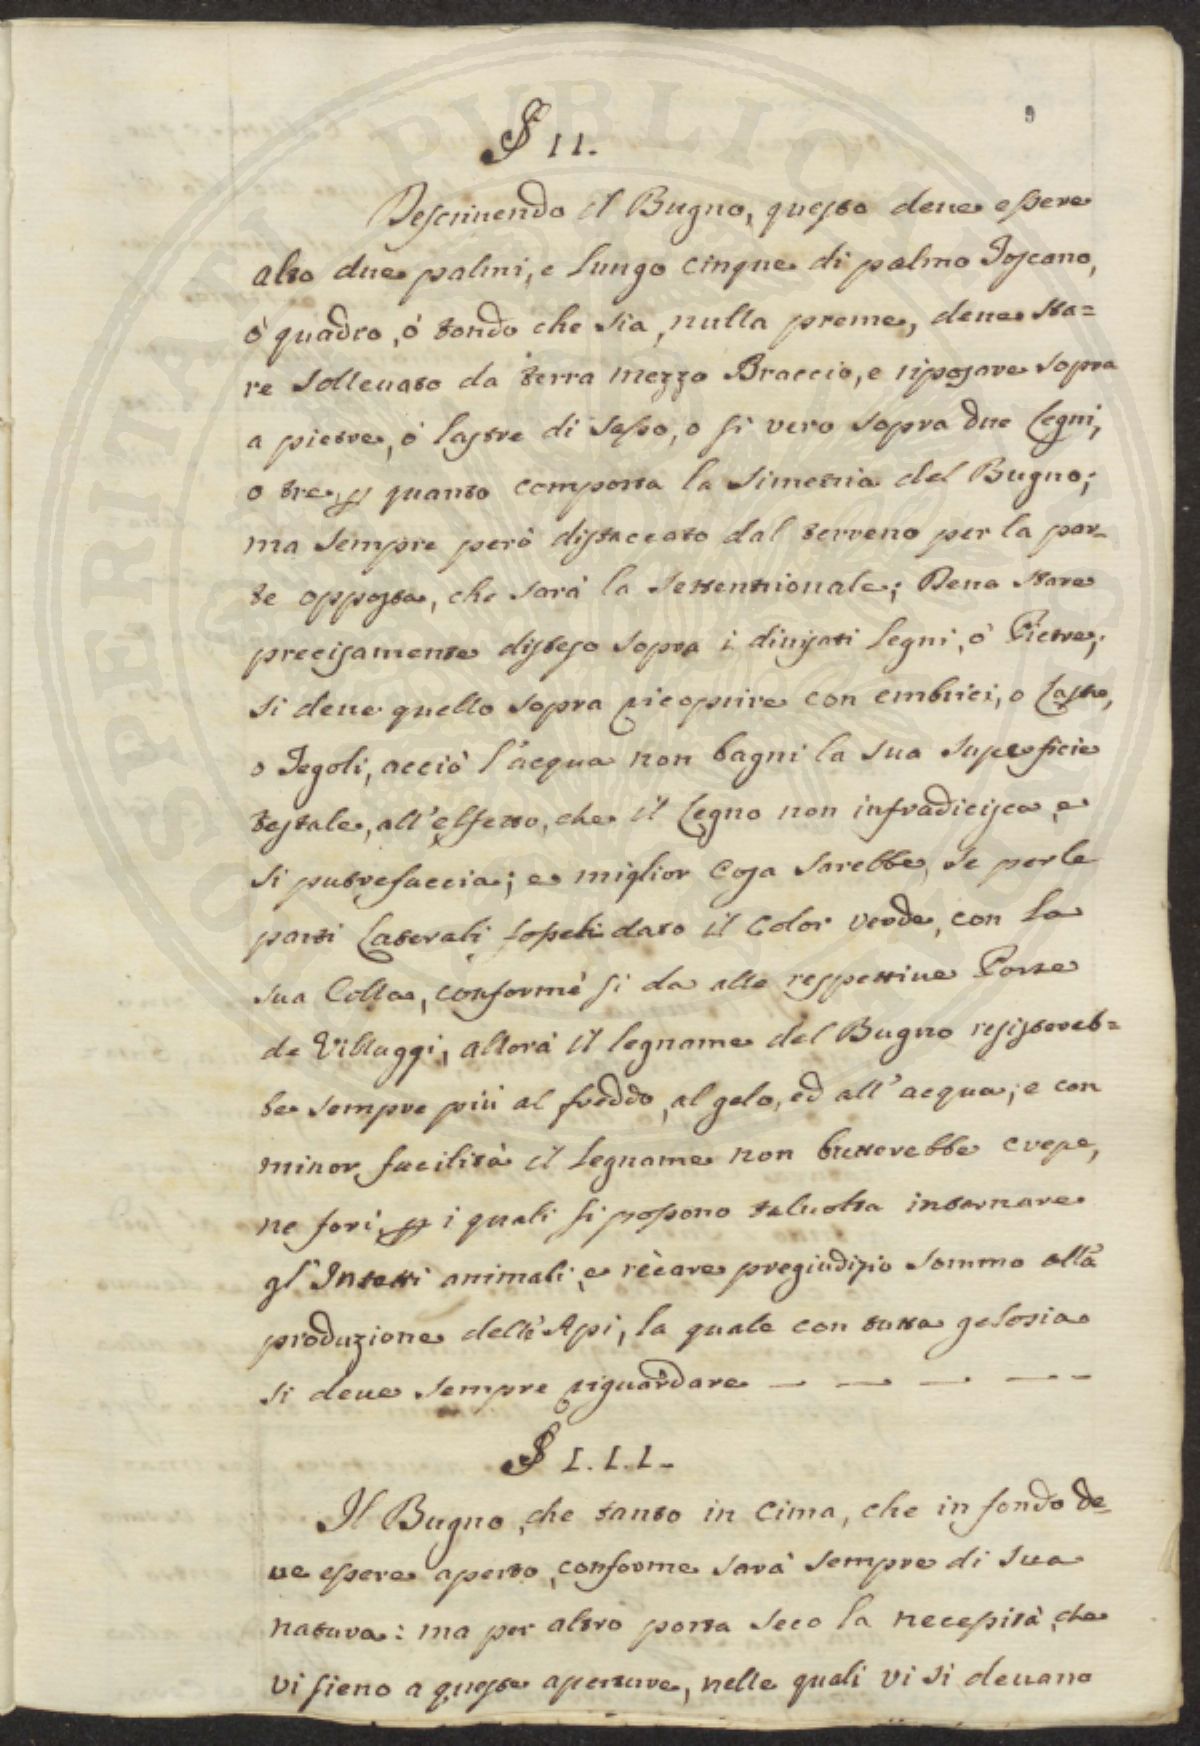 9
§ II.
Descriuendo il Bugno, questo deue essere
alto due palmi, e lungo cinque di palmo Toscano,
ò quadro, ò tondo che sia, nulla preme, deue sta=
re solleuato da terra mezzo Braccio, e riposare sopra
a pietre, ò lastre di sasso, o si vero sopra due Legni,
o tre, p quanto comporta la simetria del Bugno;
ma sempre però distaccato dal terreno per la par=
te opposta, che sarà la settentrionale; Deue stare
precisamente disteso sopra i diuisati Legni, ò Pietre,
si deue quello sopra ricoprire con embrici, o Lastre,
o Tegoli, acciò l'acqua non bagni la sua superficie
testale, all'effetto, che il Legno non infradicisca, e
si putrefaccia; e miglior cosa sarebbe, se per le
parti Laterali, fosseli dato il color verde, con la
sua Colla, conforme si da alle respettiue Porte
de Villaggi, allora il legname del Bugno resistereb=
be sempre più al freddo, al gelo, ed all'acqua; e con
minor facilità il Legname non butterebbe crepe,
ne fori, p i quali si possono taluolta internare
gl'Insetti animali, e recare pregiudizio sommo alla
produzione dell'Api, la quale con tutta gelosia
si deue sempre riguardare — — — — -
§ I.I.I.
Il Bugno, che tanto in cima, che in fondo de=
ue essere aperto, conforme sarà sempre di sua
natura: ma per altro porta seco la necessità, che
vi sieno a queste aperture, nelle quali vi si deuano
SPERITATI PUBLICAE